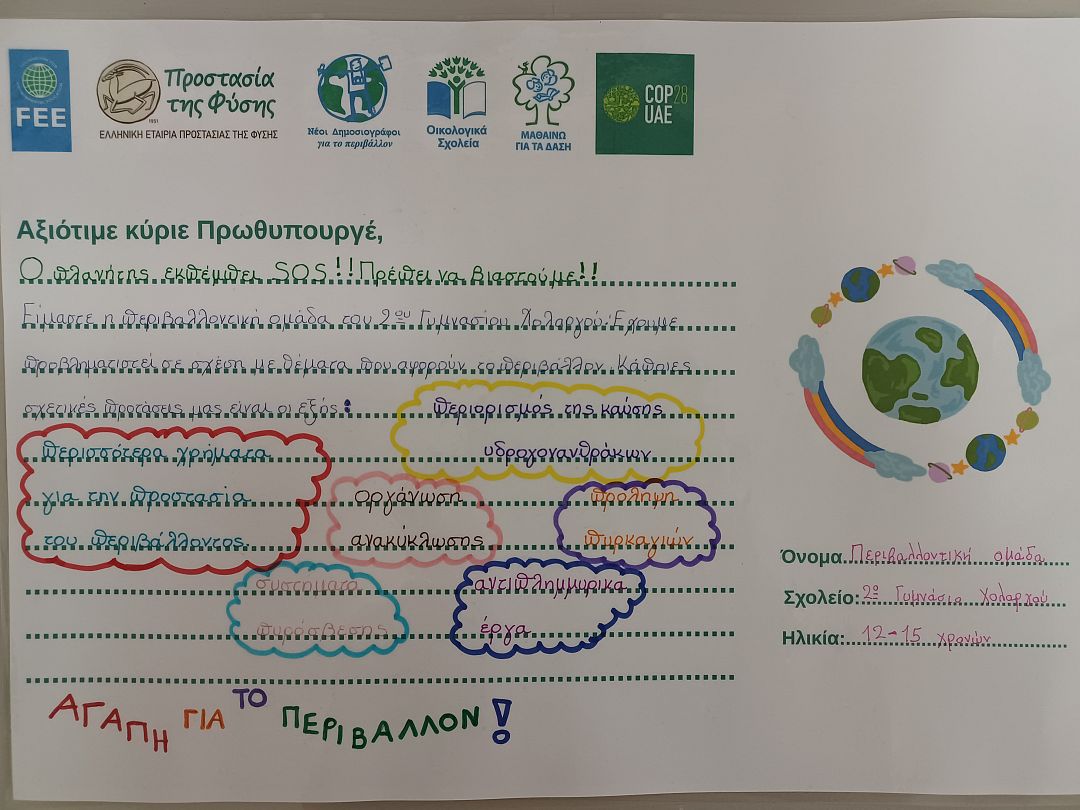 FEE
Προστασία
της Φύσης
1951
ΕΛΛΗΝΙΚΗ ΕΤΑΙΡΙΑ ΠΡΟΣΤΑΣΙΑΣ ΤΗΣ ΦΥΣΗΣ
Νέοι Δημοσιογράφοι
για το περιβάλλον
Οικολογικά
Σχολεία
ΜΑΘΑΙΝΩ
ΓΙΑ ΤΑ ΔΑΣΗ
COP28
UAE
Αξιότιμε κύριε Πρωθυπουργέ,
Ο πλανήτης εκπέμπει SOS!! Πρέπει να βιαστούμε!!
Είμαστε η περιβαλλοντική ομάδα του 2ου Γυμνασίου Χολαργού. Έχουμε
προβληματιστεί σε σχέση με θέματα που αφορούν το περιβάλλον. Κάποιες
σχετικές προτάσεις μας είναι οι εξής:
περιορισμός της καύσης
υδρογονανθράκων
περισσότερα χρήματα
για την προστασία
του περιβάλλοντος
οργάνωση
ανακύκλωσης
πρόληψη
πυρκαγιών
συστήματα
πυρόσβεσης
αντιπλημμυρικά
έργα
ΑΓΑΠΗ ΓΙΑ ΤΟ ΠΕΡΙΒΑΛΛΟΝ!
Όνομα Περιβαλλοντική ομάδα
Σχολείο: 2ο Γυμνάσιο Χολαργού
Ηλικία: 12-15 χρονών